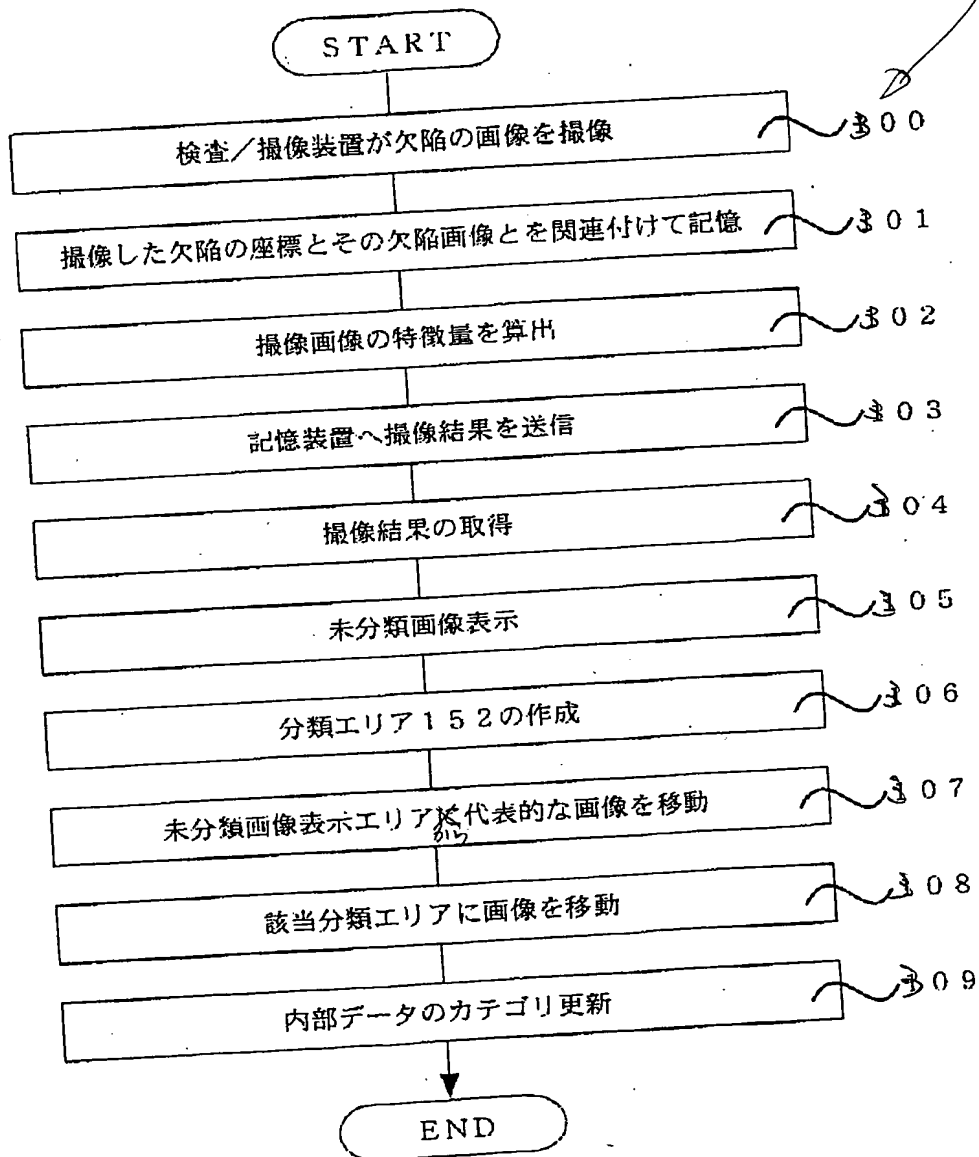 START
検査／撮像装置が欠陥の画像を撮像
300
撮像した欠陥の座標とその欠陥画像とを関連付けて記憶
301
撮像画像の特徴量を算出
302
記憶装置へ撮像結果を送信
303
撮像結果の取得
304
未分類画像表示
305
分類エリア152の作成
306
未分類画像表示エリアから代表的な画像を移動
307
該当分類エリアに画像を移動
308
内部データのカテゴリ更新
309
END